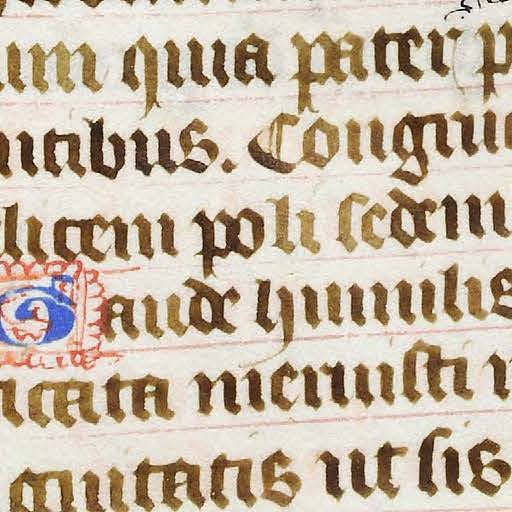 um quia pater p
ntibus. Congru
licem poli sedem
Gaude humilis
icata meruisti
gnitatis ut sis